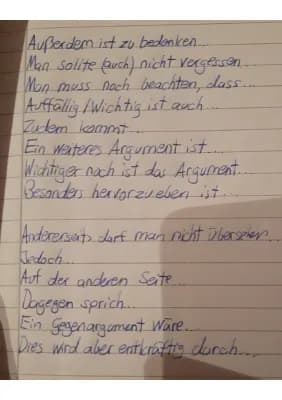 Außerdem ist zu bedenken...
Man sollte (auch) nicht vergessen...
Man muss noch beachten, dass...
Auffällig/Wichtig ist auch...
Zudem kommt...
Ein weiteres Argument ist...
Wichtiger noch ist das Argument...
Besonders hervorzueben ist...
Andererseits darf man nicht übersehen...
Jedoch...
Auf der anderen Seite...
Dagegen sprich...
Ein Gegenargument wäre...
Dies wird aber entkräftig durch...